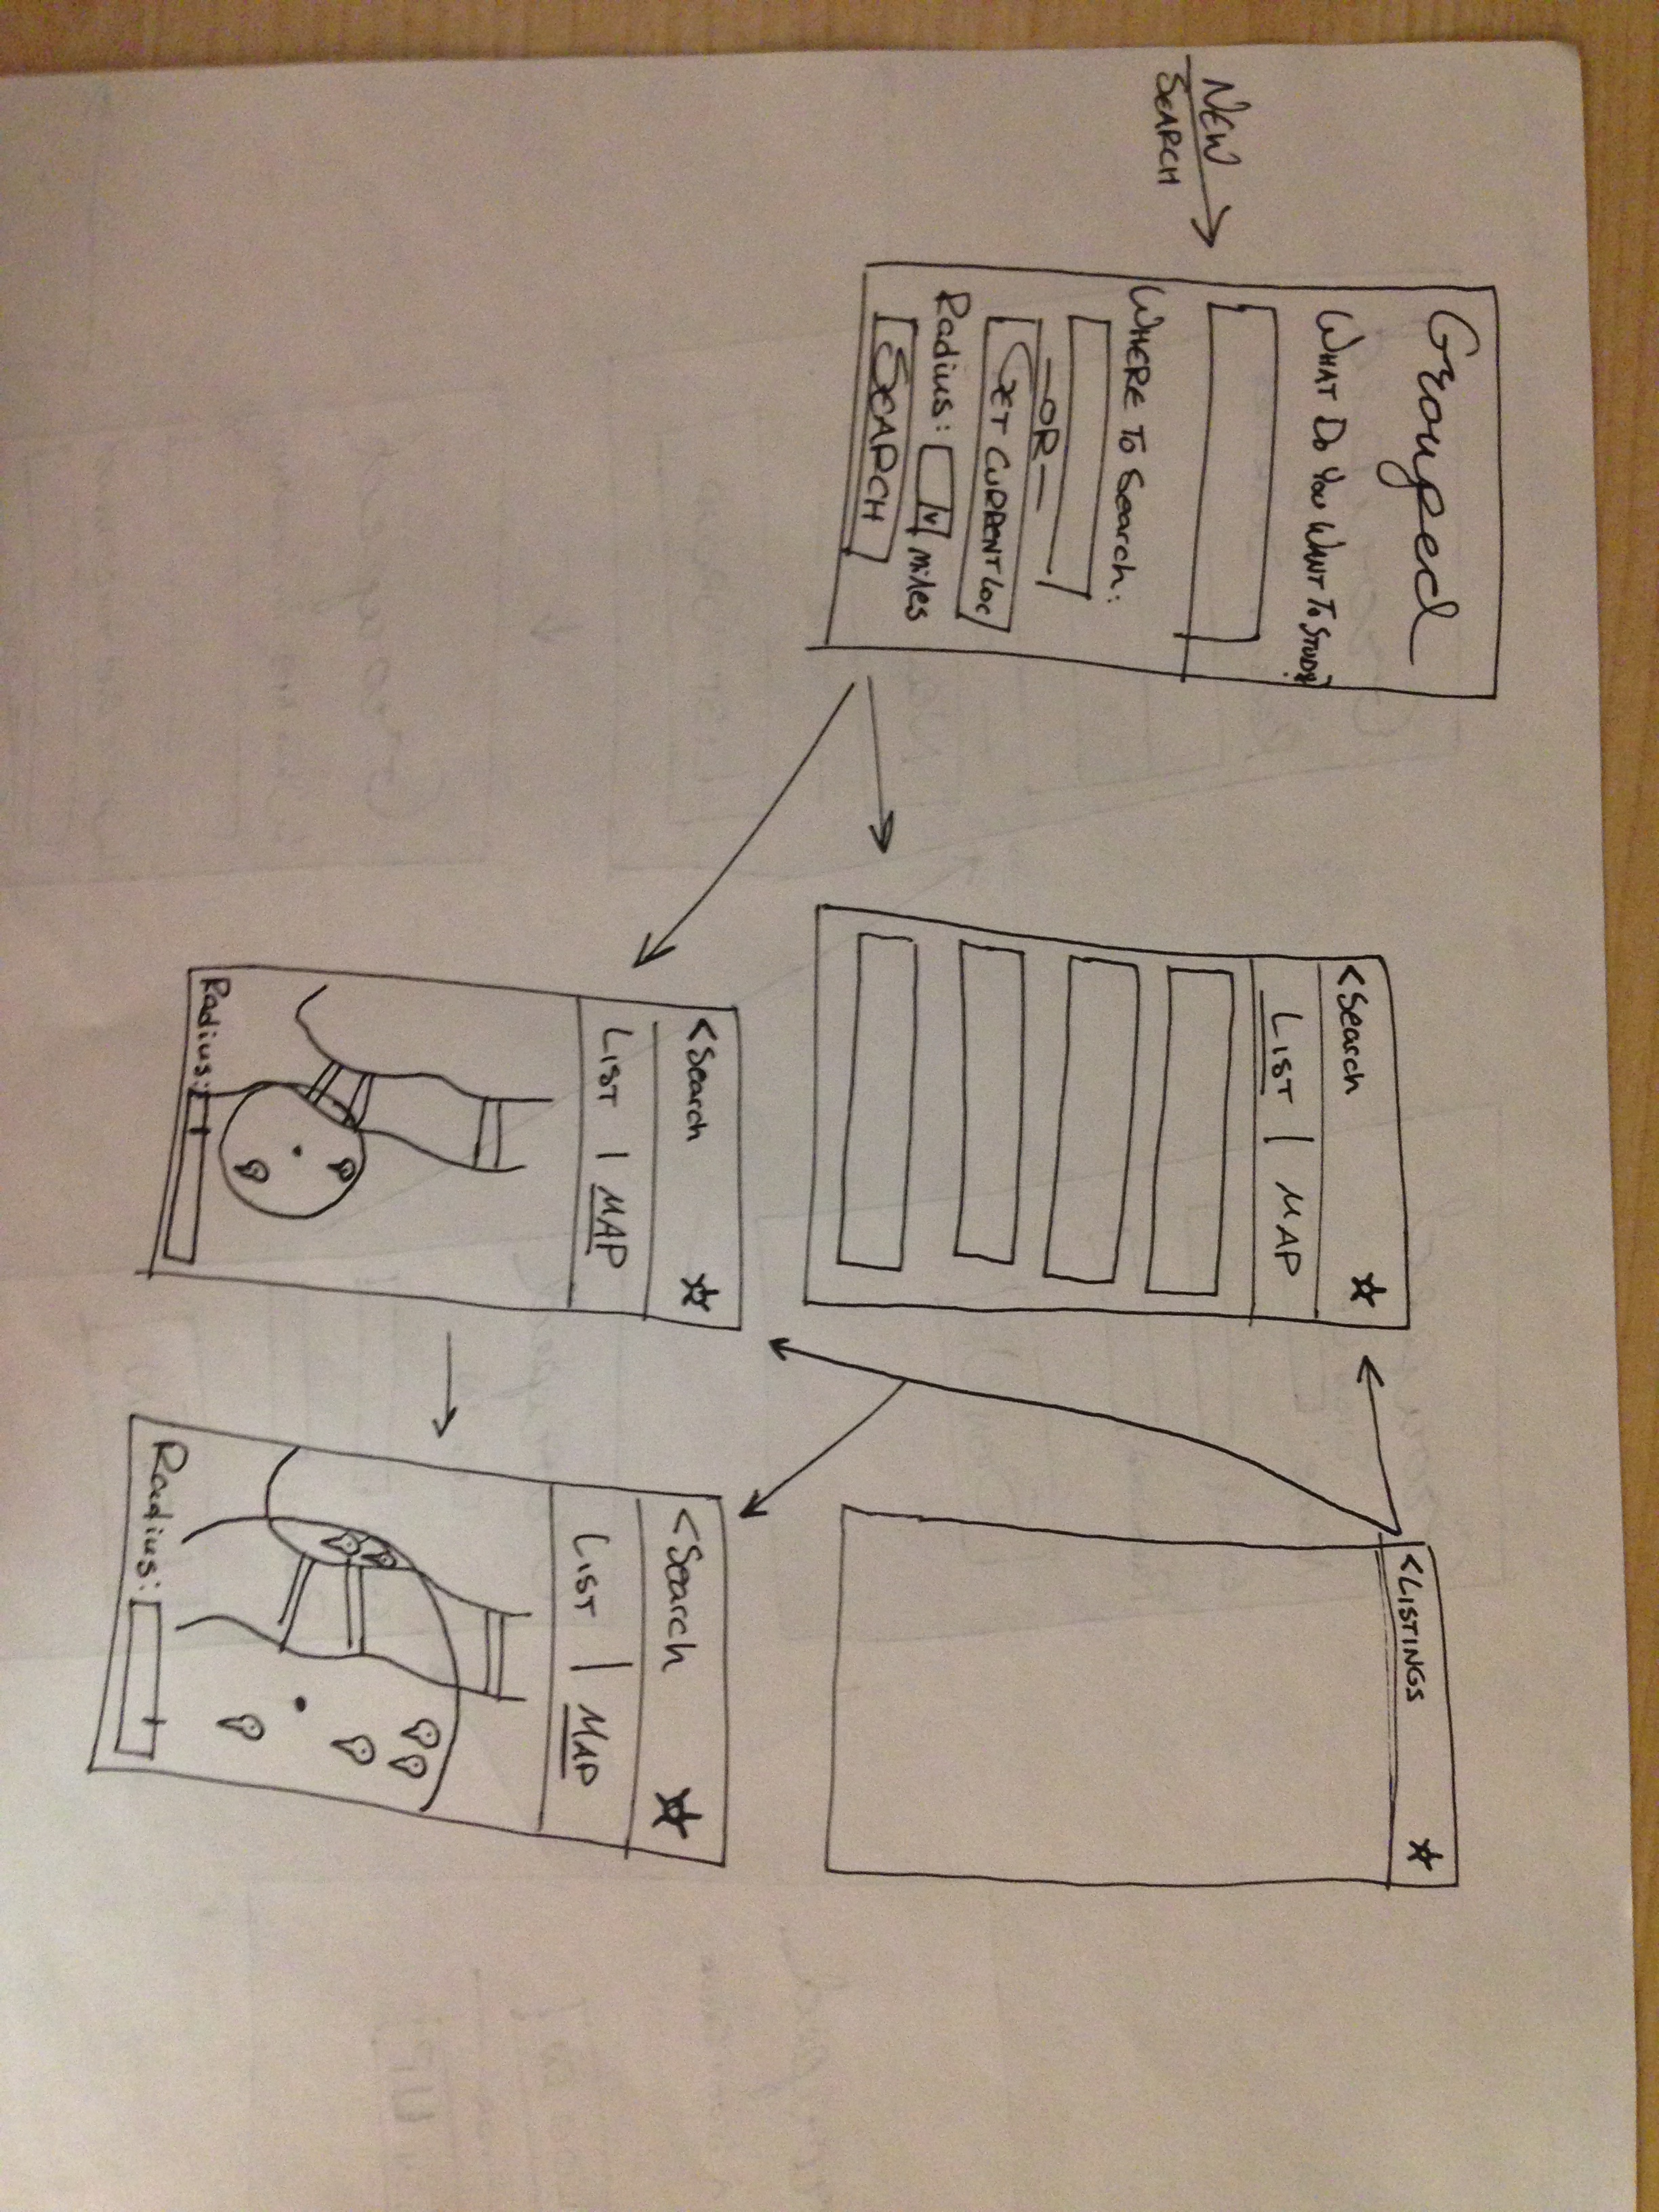 NEW
SEARCH
Grouped
WHAT DO YOU WANT TO STUDY?
WHERE TO Search:
—OR—
GET CURRENT LOC
Radius: miles
SEARCH
<Search ☆
LIST | MAP
<LISTINGS ☆
<Search ☆
LIST | MAP
Radius:
<Search ☆
LIST | MAP
Radius: